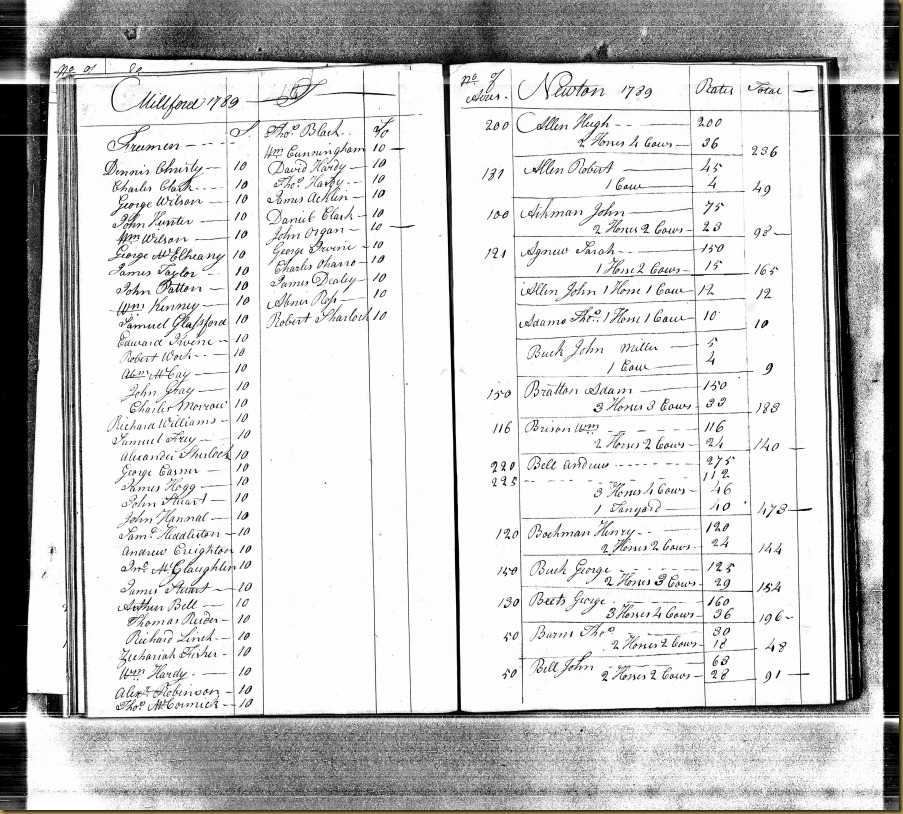 No of
Millford 1789
Freemen S.
Dennis Christy 10
Charles Clark 10
George Wilson 10
John Hunter 10
Wm Wilson 10
George McElheany 10
James Taylor 10
John Patton 10
Wm Kenney 10
Samuel Glassford 10
Edward Irvine 10
Robert Work 10
Abm McCay 10
John Gray 10
Charles Morrow 10
Richard Williams 10
Samuel Frey 10
Alexander Sherlock 10
George Casner 10
James Hogg 10
John Stuart 10
John Hannal 10
Saml Huddleston 10
Andrew Creighton 10
Jno McGlaughlin 10
James Stuart 10
Arthur Bell 10
Thomas Reider 10
Richard Linch 10
Zechariah Fisher 10
Wm Hardy 10
Alexr Robinson 10
Thos McCormick 10
Thos Black 10
Wm Cunningham 10
David Hardy 10
Thos Hardy 10
James Acklin 10
Daniel Clark 10
John Organ 10
George Irwine 10
Charles Oharro 10
James Dealey 10
Abner Ross 10
Robert Sharlock 10
No of Acres. Newton 1789 Rates Total
200 Allen Hugh 200
2 Horses 4 Cows 36 236
131 Allen Robert 45
1 Cow 4 49
100 Aikman John 75
2 Horses 2 Cows 23 98
121 Agnew Sarah 150
1 Horse 2 Cows 15 165
Allen John 1 Horse 1 Cow 12 12
Adams Thos. 1 Horse 1 Cow 10 10
Buck John Miller 5
1 Cow 4 9
150 Bratton Adam 150
3 Horses 3 Cows 33 183
116 Brison Wm 116
2 Horses 2 Cows 24 140
220 Bell Andrew 275
225 112
3 Horses 4 Cows 46
1 Tanyard 40 473
120 Bockman Henry 120
2 Horses 2 Cows 24 144
150 Buck George 125
2 Horses 3 Cows 29 154
130 Beets George 160
3 Horses 4 Cows 36 196
50 Barns Thos 30
2 Horses 2 Cows 18 48
50 Bell John 63
2 Horses 2 Cows 28 91